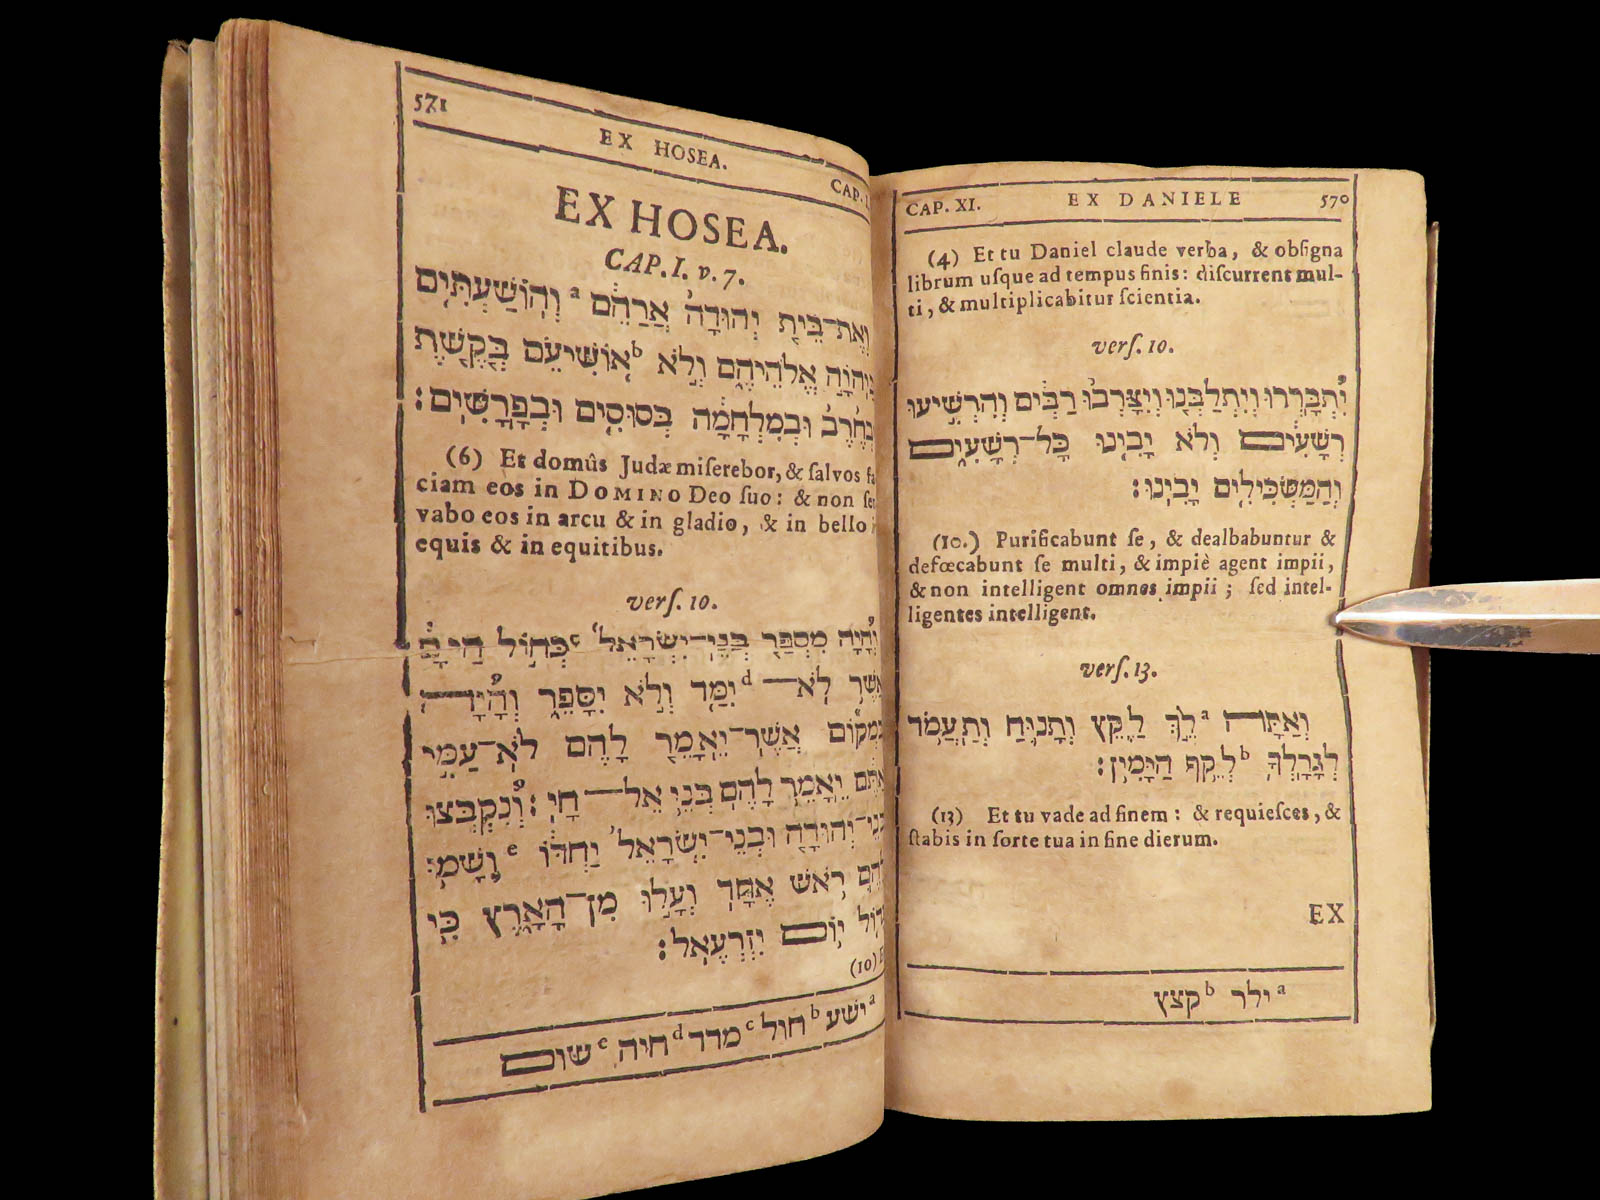 CAP. XI. EX DANIELE 570
(4) Et tu Daniel claude verba, & obſigna
librum uſque ad tempus finis: diſcurrent mul-
ti, & multiplicabitur ſcientia.
verſ. 10.
יִ֠תְבָּרֲרוּ וְיִתְלַבְּנ֤וּ וְיִצָּרְפוּ֙ רַבִּ֔ים וְהִרְשִׁ֣יעוּ
רְשָׁעִ֔ים וְלֹ֥א יָבִ֖ינוּ כָּל־רְשָׁעִ֑ים
וְהַמַּשְׂכִּילִ֖ים יָבִֽינוּ׃
(10.) Purificabunt ſe, & dealbabuntur &
defœcabunt ſe multi, & impiè agent impii,
& non intelligent omnes impii; ſed intel-
ligentes intelligent.
verſ. 13.
וְאַתָּ֖ה a לֵ֣ךְ לַקֵּ֑ץ וְתָנ֛וּחַ וְתַעֲמֹ֥ד
לְגֹרָלְךָ֖ b לְקֵ֥ץ הַיָּמִֽין׃
(13) Et tu vade ad finem: & requieſces, &
ſtabis in ſorte tua in fine dierum.
EX
a ילך b קצץ
571 EX HOSEA. CAP. I.
EX HOSEA.
CAP. I. v. 7.
וְאֶת־בֵּ֤ית יְהוּדָה֙ אֲרַחֵ֔ם a וְהֽוֹשַׁעְתִּ֖ים
בַּיהֹוָ֣ה אֱלֹהֵיהֶ֑ם וְלֹ֣א b אֽוֹשִׁיעֵ֗ם בְּקֶ֤שֶׁת
וּבְחֶ֙רֶב֙ וּבְמִלְחָמָ֔ה בְּסוּסִ֖ים וּבְפָרָשִֽׁים׃
(6) Et domûs Judæ miſerebor, & ſalvos fa
ciam eos in DOMINO Deo ſuo: & non ſer
vabo eos in arcu & in gladio, & in bello
equis & in equitibus.
verſ. 10.
וְֽ֠הָיָה מִסְפַּ֤ר בְּנֵֽי־יִשְׂרָאֵל֙ c כְּח֣וֹל הַיָּ֔ם
אֲשֶׁ֥ר לֹֽא־ d יִמַּ֖ד וְלֹ֣א יִסָּפֵ֑ר וְֽ֠הָיָה
בִּמְק֞וֹם אֲשֶׁר־יֵאָמֵ֤ר לָהֶם֙ לֹֽא־עַמִּ֣י
אַתֶּ֔ם יֵאָמֵ֥ר לָהֶ֖ם בְּנֵ֥י אֵל־חָֽי׃ וְ֠נִקְבְּצוּ
בְּנֵֽי־יְהוּדָ֤ה וּבְנֵֽי־יִשְׂרָאֵל֙ יַחְדָּ֔ו e וְשָׂמ֥וּ
לָהֶ֛ם רֹ֥אשׁ אֶחָ֖ד וְעָל֣וּ מִן־הָאָ֑רֶץ כִּ֥י
גָד֖וֹל י֥וֹם יִזְרְעֶֽאל׃
(10)
a ישע b חול c מדד d חיה e שום